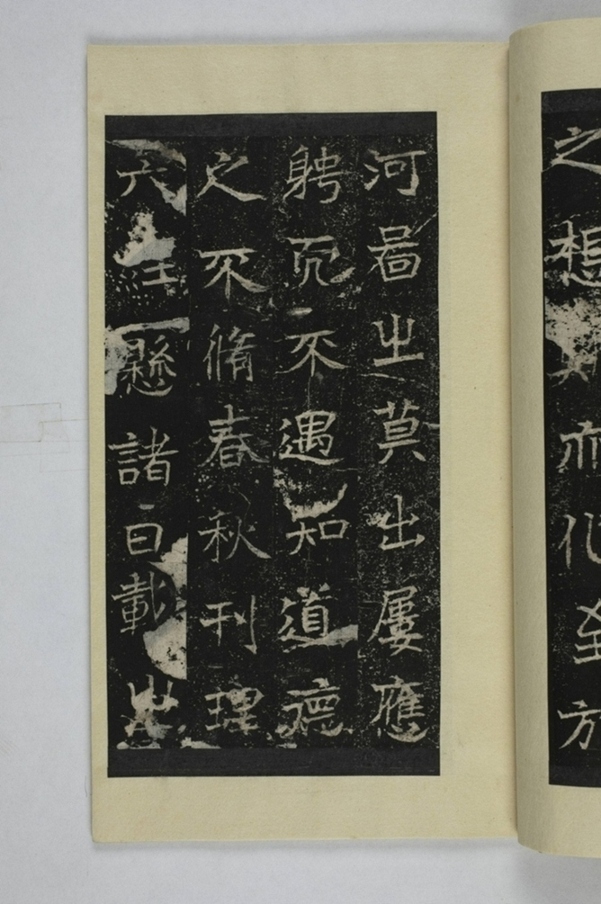 之想亦化至方
河啚㞢莫出屢應
聘而不遇知道德
之不脩春秋刊理
六經懸諸日載